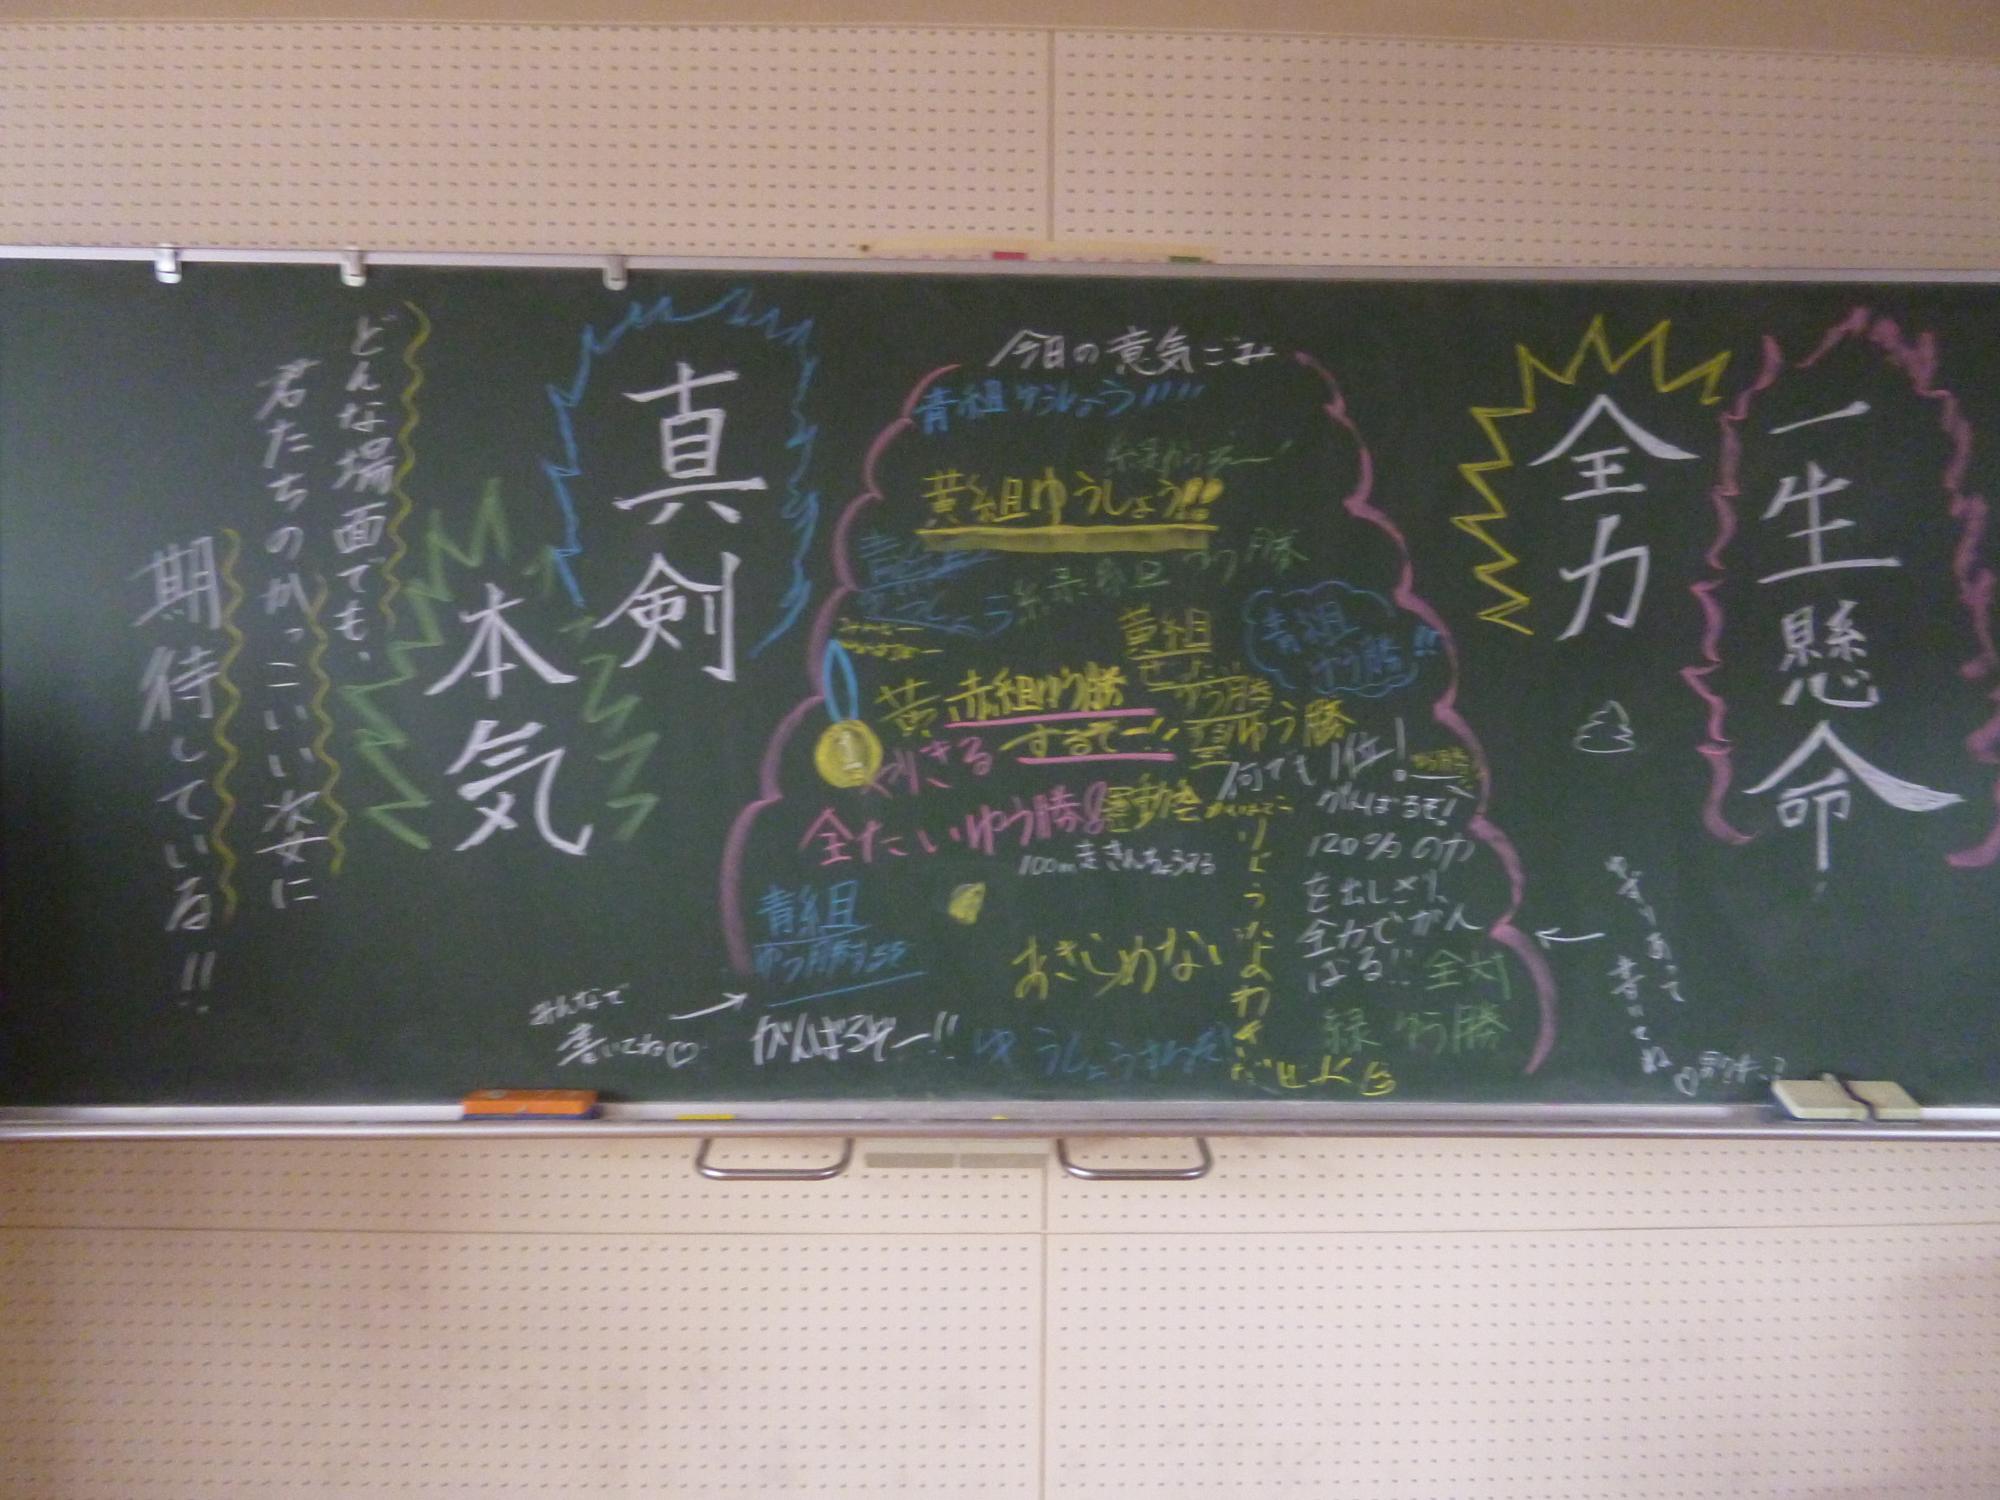 一生懸命
全力
今日の意気ごみ
青組ゆうしょう!!!!
黄組ゆうしょう!!
緑組ゆう勝
黄組
ぜったい
ゆう勝
青組
ゆう勝!!
黄
赤組ゆう勝
するぞー!!
ゆう勝
やりきる
何でも1位!
がんばるぞ!
全たいゆう勝!!
運動会
100m走きんちょうする
120%の力
を出しきり、
全力でがん
ばる!!
青組
ゆう勝
あきらめない
全対
緑ゆう勝
がんばるぞー!!
ゆうしょうするぞ!
みんなで
書いてね♡
ゆずりあって
書いてね
真剣
本気
どんな場面でも、
君たちのかっこいい姿に
期待している!!